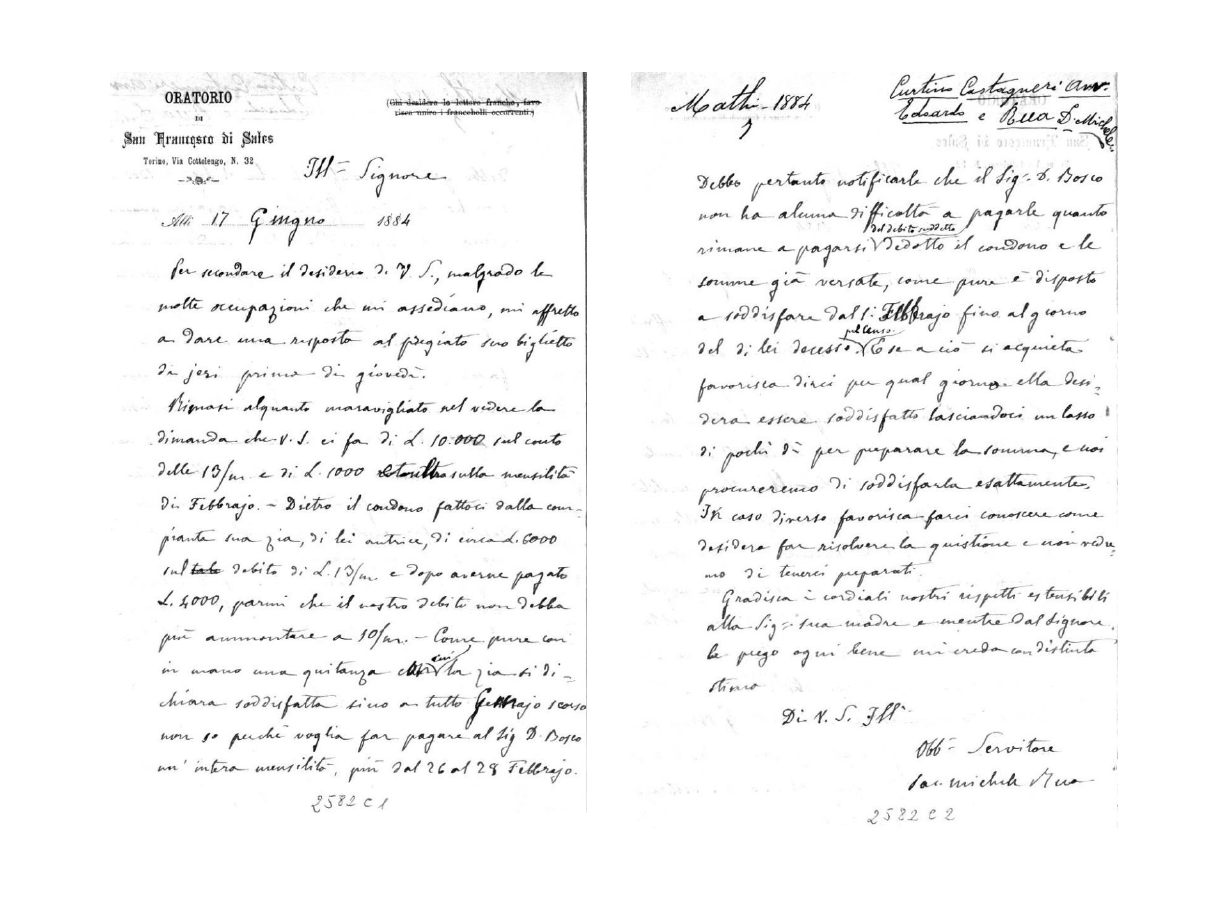 ORATORIO
DI
San Francesco di Sales
Torino, Via Cottolengo, N. 32
(Chi desidera la lettera franca, favo-
risca unire i francobolli occorrenti.)
Ill.mo Signore
Alli 17 Giugno 1884
Per secondare il desiderio di V. S., malgrado le
molte occupazioni che mi assediano, mi affretto
a dare una risposta al pregiato suo biglietto
di jeri prima di giovedì.
Rimasi alquanto maravigliato nel vedere la
dimanda che V. S. ci fa di L. 10.000 sul conto
delle 13/m. e di L. 1000 sulla mensilità
di Febbrajo. – Dietro il condono fattoci dalla com-
pianta sua zia, di lei autrice, di circa L. 6000
sul tale debito di L. 13/m. e dopo averne pagato
L. 4000, parmi che il nostro debito non debba
più ammontare a 10/m. – Come pure con
in mano una quitanza cui la zia si di-
chiara soddisfatta sino a tutto Gennajo scorso
non so perchè voglia far pagare al Sig D. Bosco
un' intera mensilità, più dal 26 al 28 Febbrajo.
2582 C 1
Mathi - 1884
Curtino Castagneri Avv.
Edoardo e Rua D. Michele
Debbo pertanto notificarle che il Sig. D. Bosco
non ha alcuna difficoltà a pagarle quanto
del debito suddetto
rimane a pagarsi dedotto il condono e le
somme già versate, come pure è disposto
a soddisfare dal 1° Febbrajo fino al giorno
pel censo.
del di lei decesso. E se a ciò si acquieta
favorisca dirci per qual giorno ella desi-
dera essere soddisfatto lasciandoci un lasso
di pochi dì per preparare la somma, e noi
procureremo di soddisfarla esattamente.
In caso diverso favorisca farci conoscere come
desidera far risolvere la quistione e noi vedre-
mo di tenerci preparati.
Gradisca i cordiali nostri rispetti estensibili
alla Sig.ra sua madre e mentre dal Signore
le prego ogni bene mi creda con distinta
stima
Di V. S. Ill.
Obb.mo Servitore
Sac. Michele Rua
2582 C 2